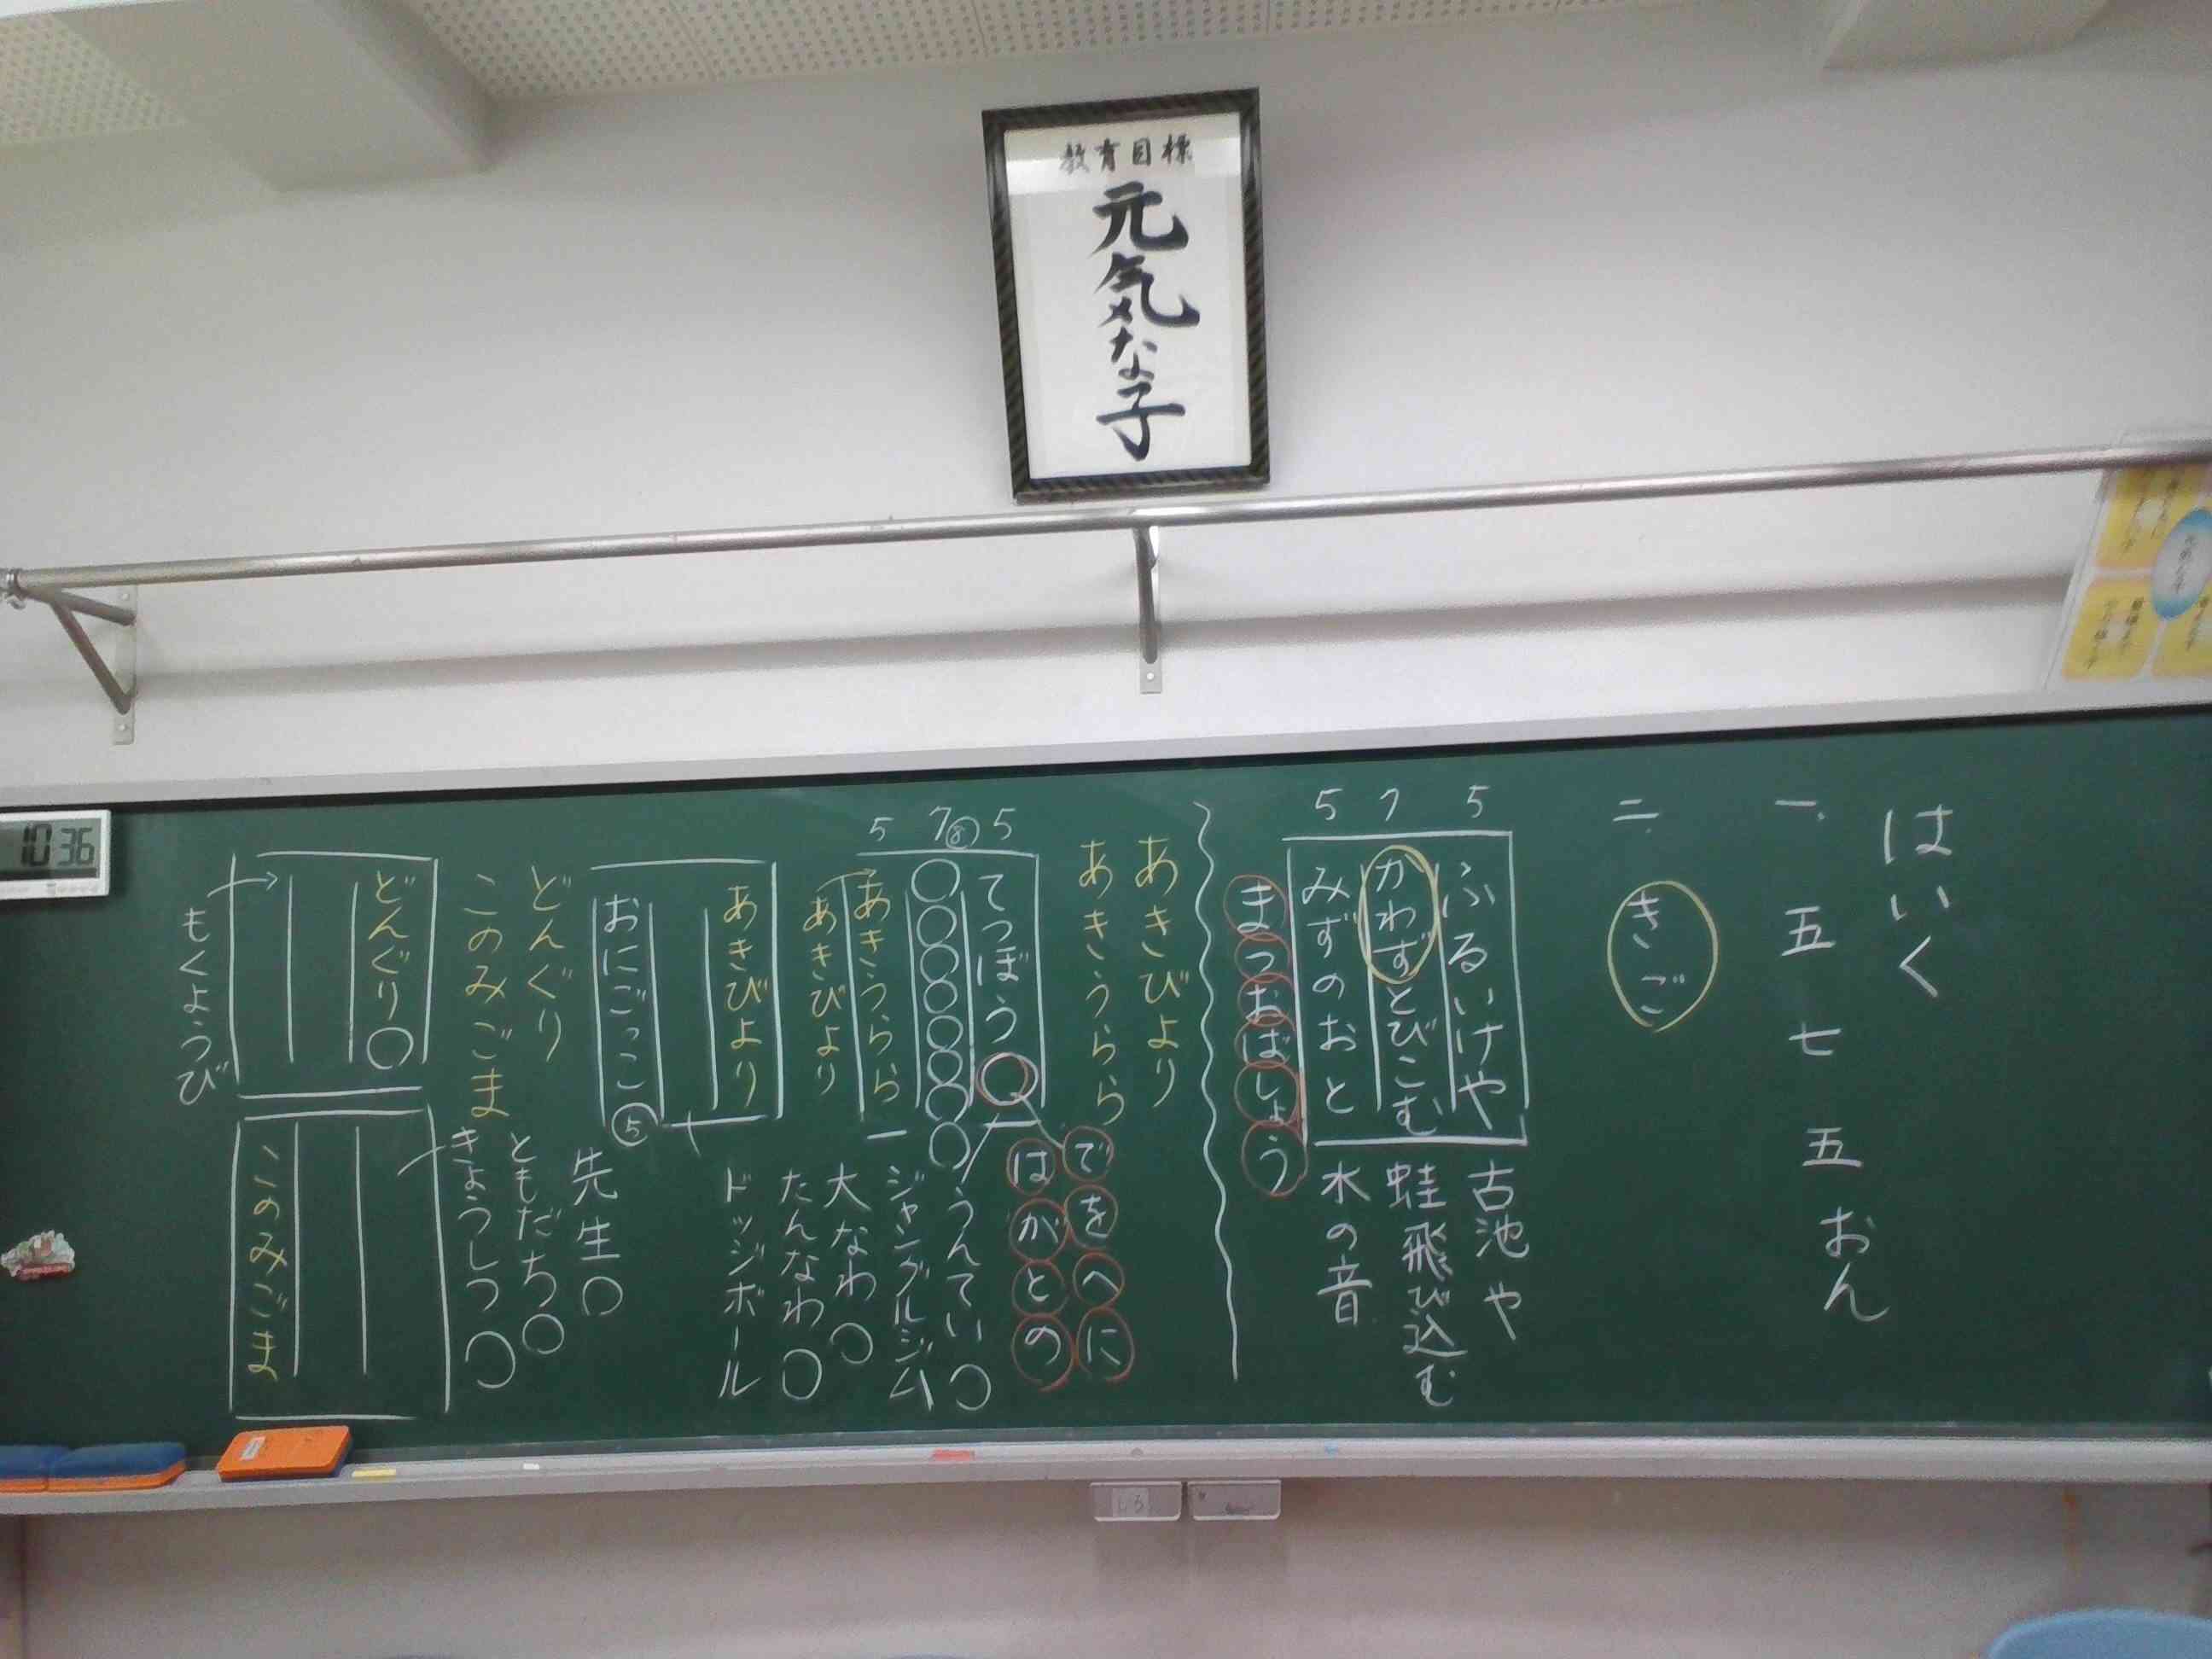 教育目標
元気な子
はいく
一、五 七 五 おん
二、きご
5 7 5
ふるいけや
かわずとびこむ
みずのおと
古池や
蛙飛び込む
水の音
まつおばしょう
あきびより
あきうらら
5 7⑧ 5
てつぼう○
○○○○○○○○
あきうらら
あきびより
でをへに
はがとの
うんてい○
ジャングルジム
大なわ○
たんなわ○
ドッジボール
あきびより
おにごっこ⑤
先生○
ともだち○
きょうしつ○
どんぐり
このみごま
どんぐり○
もくようび
このみごま
10 36